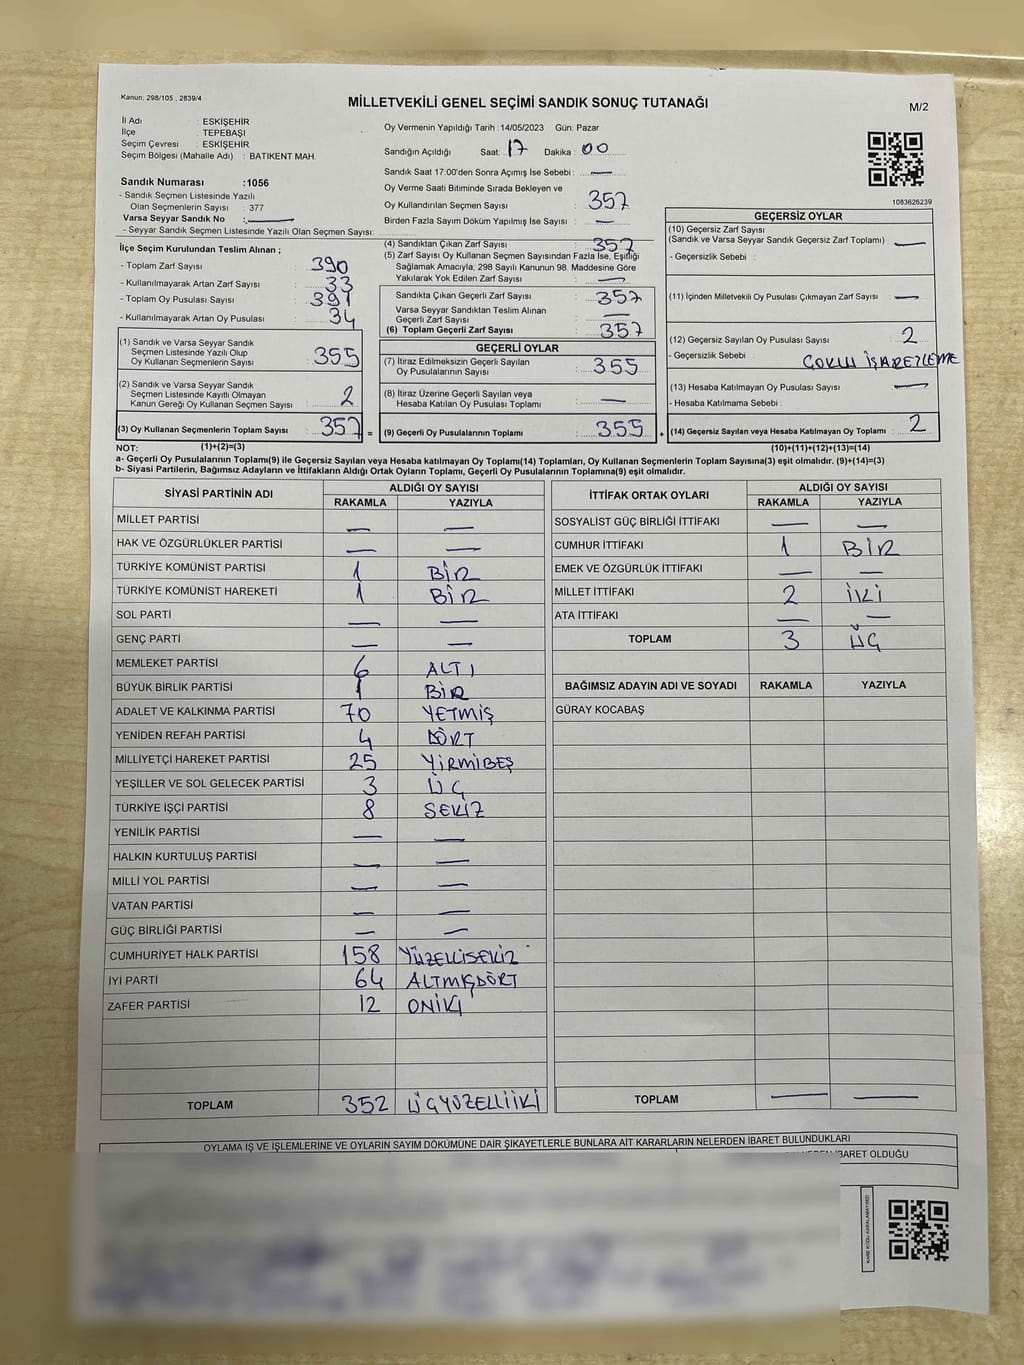 Kanun, 298/105 , 2839/4
MİLLETVEKİLİ GENEL SEÇİMİ SANDIK SONUÇ TUTANAĞI
M/2
İl Adı : ESKİŞEHİR
İlçe : TEPEBAŞI
Seçim Çevresi : ESKİŞEHİR
Seçim Bölgesi (Mahalle Adı) : BATIKENT MAH.
Oy Vermenin Yapıldığı Tarih :14/05/2023 Gün: Pazar
Sandığın Açıldığı Saat: 17 Dakika : 00
Sandık Saat 17:00'den Sonra Açımış İse Sebebi : —
Oy Verme Saati Bitiminde Sırada Bekleyen ve
Oy Kullandırılan Seçmen Sayısı : 357
Birden Fazla Sayım Döküm Yapılmış İse Sayısı : —
1083626239
Sandık Numarası :1056
- Sandık Seçmen Listesinde Yazılı
Olan Seçmenlerin Sayısı : 377
Varsa Seyyar Sandık No : —
- Seyyar Sandık Seçmen Listesinde Yazılı Olan Seçmen Sayısı:
İlçe Seçim Kurulundan Teslim Alınan ;
- Toplam Zarf Sayısı : 390
- Kullanılmayarak Artan Zarf Sayısı : 33
- Toplam Oy Pusulası Sayısı : 391
- Kullanılmayarak Artan Oy Pusulası : 34
(1) Sandık ve Varsa Seyyar Sandık
Seçmen Listesinde Yazılı Olup
Oy Kullanan Seçmenlerin Sayısı : 355
(2) Sandık ve Varsa Seyyar Sandık
Seçmen Listesinde Kayıtlı Olmayan
Kanun Gereği Oy Kullanan Seçmen Sayısı : 2
(3) Oy Kullanan Seçmenlerin Toplam Sayısı : 357 =
(4) Sandıktan Çıkan Zarf Sayısı : 357
(5) Zarf Sayısı Oy Kullanan Seçmen Sayısından Fazla İse, Eşitliği
Sağlamak Amacıyla, 298 Sayılı Kanunun 98. Maddesine Göre
Yakılarak Yok Edilen Zarf Sayısı : —
Sandıkta Çıkan Geçerli Zarf Sayısı : 357
Varsa Seyyar Sandıktan Teslim Alınan
Geçerli Zarf Sayısı : —
(6) Toplam Geçerli Zarf Sayısı : 357
GEÇERLİ OYLAR
(7) İtiraz Edilmeksizin Geçerli Sayılan
Oy Pusulalarının Sayısı : 355
(8) İtiraz Üzerine Geçerli Sayılan veya
Hesaba Katılan Oy Pusulası Toplamı : —
(9) Geçerli Oy Pusulalarının Toplamı : 355 +
GEÇERSİZ OYLAR
(10) Geçersiz Zarf Sayısı
(Sandık ve Varsa Seyyar Sandık Geçersiz Zarf Toplamı) : —
- Geçersizlik Sebebi :
(11) İçinden Milletvekili Oy Pusulası Çıkmayan Zarf Sayısı : —
(12) Geçersiz Sayılan Oy Pusulası Sayısı : 2
- Geçersizlik Sebebi : ÇOKLU İŞARETLEME
(13) Hesaba Katılmayan Oy Pusulası Sayısı : —
- Hesaba Katılmama Sebebi :
(14) Geçersiz Sayılan veya Hesaba Katılmayan Oy Toplamı : 2
NOT: (1)+(2)=(3) (10)+(11)+(12)+(13)=(14)
a- Geçerli Oy Pusulalarının Toplamı(9) ile Geçersiz Sayılan veya Hesaba Katılmayan Oy Toplamı(14) Toplamları, Oy Kullanan Seçmenlerin Toplam Sayısına(3) eşit olmalıdır. (9)+(14)=(3)
b- Siyasi Partilerin, Bağımsız Adayların ve İttifakların Aldığı Ortak Oyların Toplamı, Geçerli Oy Pusulalarının Toplamına(9) eşit olmalıdır.
SİYASİ PARTİNİN ADI ALDIĞI OY SAYISI
RAKAMLA YAZIYLA
MİLLET PARTİSİ — —
HAK VE ÖZGÜRLÜKLER PARTİSİ — —
TÜRKİYE KOMÜNİST PARTİSİ 1 BİR
TÜRKİYE KOMÜNİST HAREKETİ 1 BİR
SOL PARTİ — —
GENÇ PARTİ — —
MEMLEKET PARTİSİ 6 ALTI
BÜYÜK BİRLİK PARTİSİ 1 BİR
ADALET VE KALKINMA PARTİSİ 70 YETMİŞ
YENİDEN REFAH PARTİSİ 4 DÖRT
MİLLİYETÇİ HAREKET PARTİSİ 25 YİRMİBEŞ
YEŞİLLER VE SOL GELECEK PARTİSİ 3 ÜÇ
TÜRKİYE İŞÇİ PARTİSİ 8 SEKİZ
YENİLİK PARTİSİ — —
HALKIN KURTULUŞ PARTİSİ — —
MİLLİ YOL PARTİSİ — —
VATAN PARTİSİ — —
GÜÇ BİRLİĞİ PARTİSİ — —
CUMHURİYET HALK PARTİSİ 158 YÜZELLİSEKİZ
İYİ PARTİ 64 ALTMIŞDÖRT
ZAFER PARTİSİ 12 ONİKİ
TOPLAM 352 ÜÇYÜZELLİİKİ
İTTİFAK ORTAK OYLARI ALDIĞI OY SAYISI
RAKAMLA YAZIYLA
SOSYALİST GÜÇ BİRLİĞİ İTTİFAKI — —
CUMHUR İTTİFAKI 1 BİR
EMEK VE ÖZGÜRLÜK İTTİFAKI — —
MİLLET İTTİFAKI 2 İKİ
ATA İTTİFAKI — —
TOPLAM 3 ÜÇ
BAĞIMSIZ ADAYIN ADI VE SOYADI RAKAMLA YAZIYLA
GÜRAY KOCABAŞ
TOPLAM — —
OYLAMA İŞ VE İŞLEMLERİNE VE OYLARIN SAYIM DÖKÜMÜNE DAİR ŞİKAYETLERLE BUNLARA AİT KARARLARIN NELERDEN İBARET BULUNDUKLARI
İBARET OLDUĞU
KARE KODU KARALAMAYINIZ!